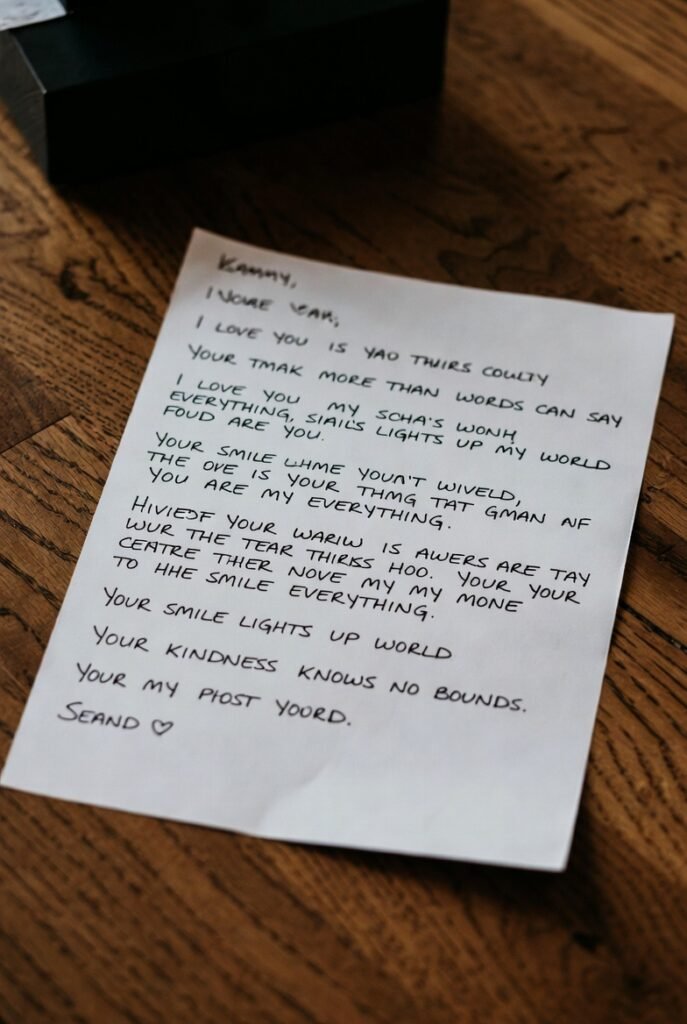 Kammy,
I LOVE YOU IS YAO THIRS COULTY
YOUR TMAK MORE THAN WORDS CAN SAY
I LOVE YOU MY SCHA'S WONH,
EVERYTHING, SIAIL'S LIGHTS UP MY WORLD
FOUD ARE YOU.
YOUR SMILE LHME YOUN'T WIVELD,
THE OVE IS YOUR THMG TAT GMAN NF
YOU ARE MY EVERYTHING.
HIVIEDF YOUR WARIW IS AWERS ARE TAY
WUR THE TEAR THIRKS HOO. YOUR YOUR
CEATRE THIER NOVE MY MY MONE
TO HHE SMILE EVERYTHING.
YOUR SMILE LIGHTS UP WORLD
YOUR KINDNESS KNOWS NO BOUNDS.
YOUR MY PIOST YOORD.
SEAND ♡